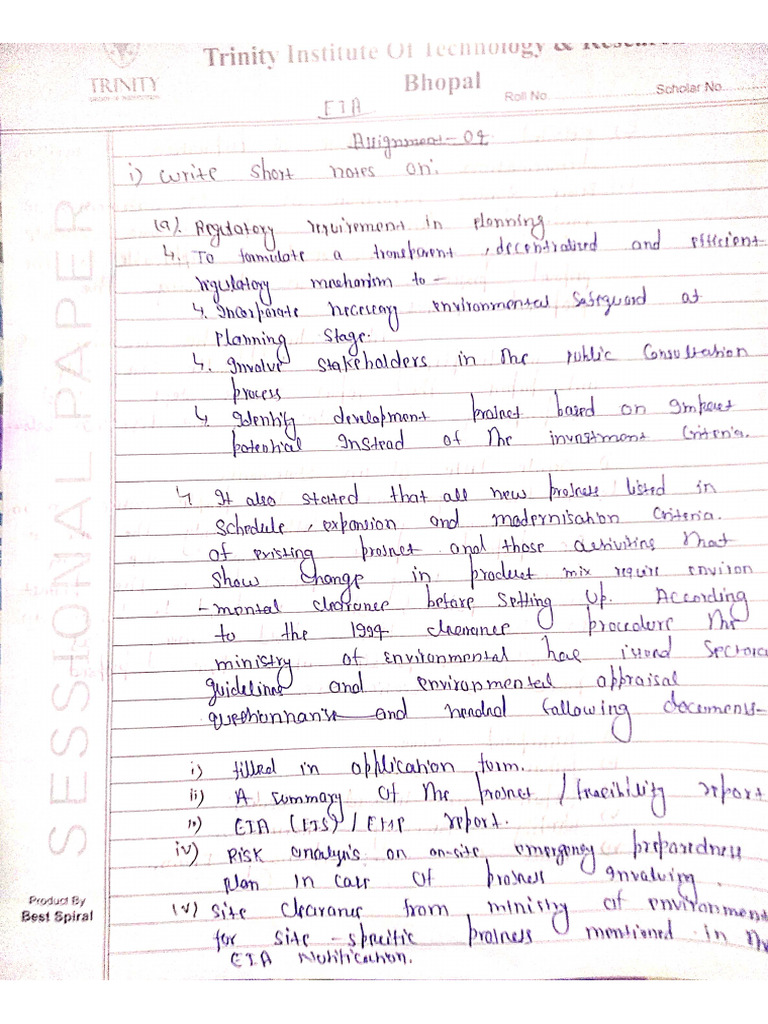 Trinity Institute Of Technology & Research
Bhopal
TRINITY
Roll No.
Scholar No.
EIA
Assignment-04
i) Write short notes on:
(a). Regulatory requirement in planning
To formulate a transparent, decentralized and efficient
regulatory mechanism to -
Incorporate necessary environmental safeguard at
planning stage.
Involve stakeholders in the public consultation
process
Identify development project based on impact
potential instead of the investment criteria.
It also stated that all new projects listed in
schedule, expansion and modernisation criteria.
of existing project and those activities that
show change in product mix require environ
-mental clearance before setting up. According
to the 1994 clearance procedure the
ministry of environmental have issued sectoral
guidelines and environmental appraisal
questionnaire and needed following documents-
i) filled in application form.
ii) A summary of the project / feasibility report
EIA (EIS) / EMP report.
iv) Risk analysis on on-site emergency preparedness
plan in case of project involving.
(v) site clearance from ministry of environment
for site - specific projects mentioned in the
EIA Notification.
SESSIONAL PAPER
Product By
Best Spiral